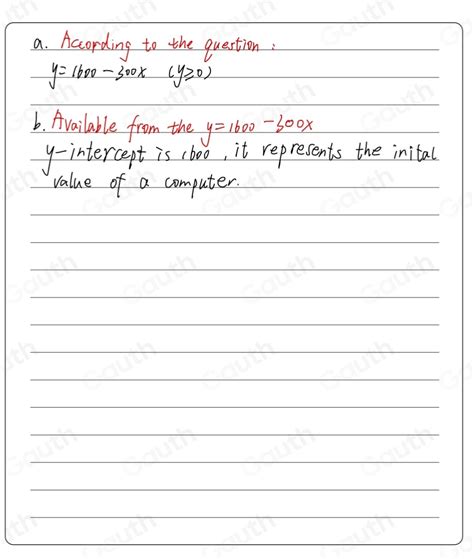 a. According to the question :
y=1600-300x (y≥0)
b. Available from the y=1600-300x
y-intercept is 1600, it represents the inital
value of a computer.